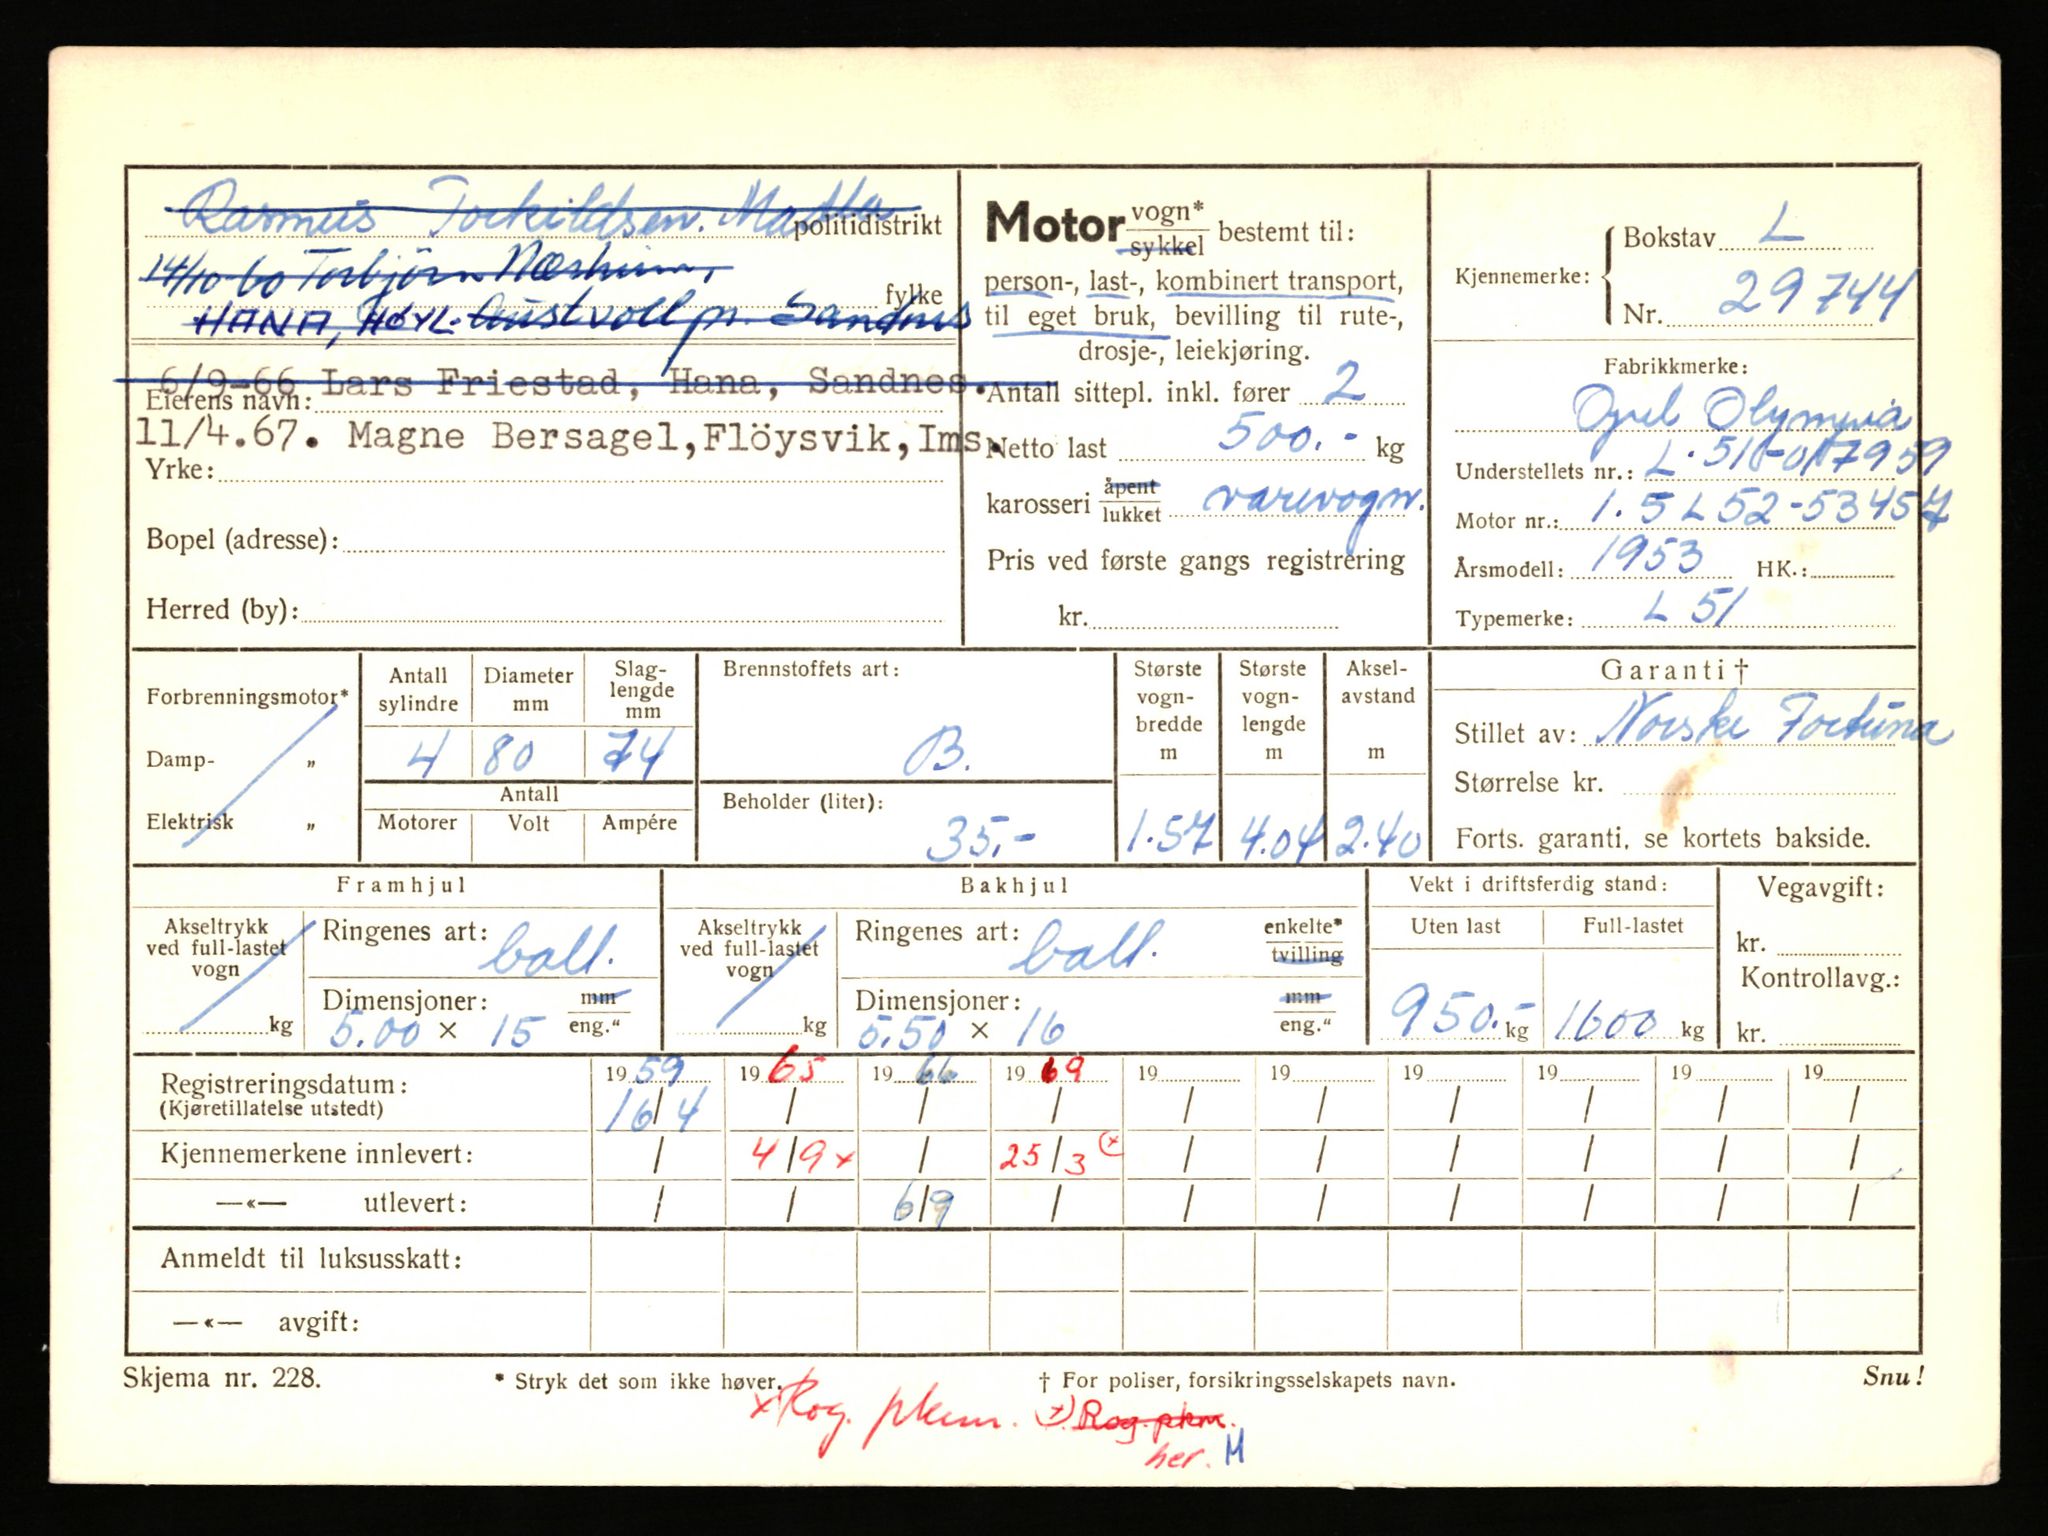 Rasmus Torkildsen. politidistrikt
14/10-60 Torbjörn Næsheim,
fylke
HANA, HØYL. Austvoll pr. Sandnes
6/9-66 Lars Friestad, Hana, Sandnes.
Eierens navn:
11/4.67. Magne Bersagel, Flöysvik, Ims.
Yrke:
Bopel (adresse):
Herred (by):
Motor vogn* sykkel bestemt til:
person-, last-, kombinert transport,
til eget bruk, bevilling til rute-,
drosje-, leiekjøring.
Antall sittepl. inkl. fører 2
Netto last 500.- kg
karosseri åpent lukket varevogn.
Pris ved første gangs registrering
kr.
Kjennemerke: Bokstav L
Nr. 29744
Fabrikkmerke:
Opel Olympia
Understellets nr.: L.51-017959
Motor nr.: 1.5 L 52-53457
Årsmodell: 1953 HK.:
Typemerke: L 51
Forbrenningsmotor*
Damp- „
Elektrisk „
Antall sylindre Diameter mm Slag-lengde mm
4 80 74
Antall
Motorer Volt Ampére
Brennstoffets art:
B.
Beholder (liter):
35.-
Største vogn-bredde m Største vogn-lengde m Aksel-avstand m
1.57 4.04 2.40
Garanti †
Stillet av: Norske Fortuna
Størrelse kr.
Forts. garanti, se kortets bakside.
Framhjul
Akseltrykk ved full-lastet vogn
kg
Ringenes art: ball.
Dimensjoner: mm
5.00 × 15 eng."
Bakhjul
Akseltrykk ved full-lastet vogn
kg
Ringenes art: ball. enkelte* tvilling
Dimensjoner: mm
5.50 × 16 eng."
Vekt i driftsferdig stand:
Uten last Full-lastet
950.- kg 1600 kg
Vegavgift:
kr.
Kontrollavg.:
kr.
Registreringsdatum: 19 59 19 65 19 66 19 69 19 19 19 19 19 19
(Kjøretillatelse utstedt) 16/4 / / / / / / / / /
Kjennemerkene innlevert: / 4/9 x / 25/3 (x) / / / / / /
—«— utlevert: / / 6/9 / / / / / / /
Anmeldt til luksusskatt:
—«— avgift:
Skjema nr. 228. * Stryk det som ikke høver. † For poliser, forsikringsselskapets navn. Snu!
x Rog. pkm. (x) Rog. pkm.
her. M